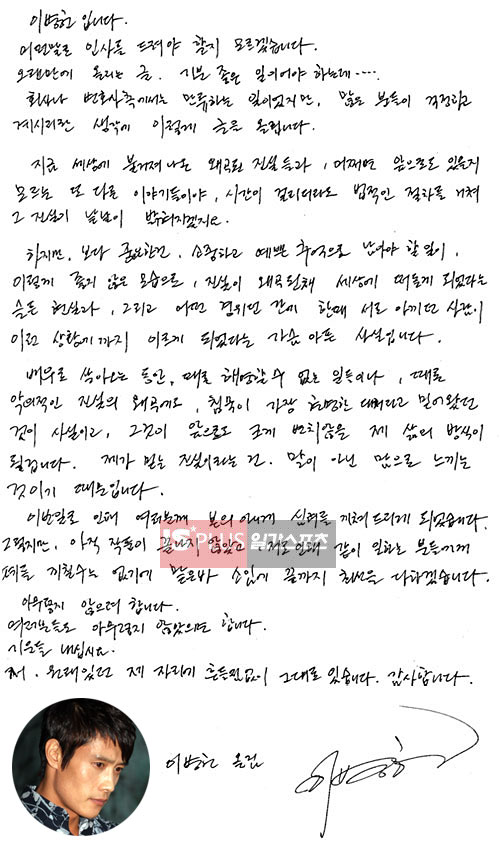 이병헌 입니다.
어떤말로 인사를 드려야 할지 모르겠습니다.
오랜만에 올리는 글. 기분 좋은 일이어야 하는데‥‥
회사나 변호사측에서는 만류하는 일이었지만, 많은 분들이 걱정하고
계시리란 생각에 이렇게 글을 올립니다.
지금 세상에 불거져나온 왜곡된 진실들과, 어쩌면 앞으로도 있을지
모르는 또 다른 이야기들이야, 시간이 걸리더라도 법적인 절차를 거쳐
그 진실이 낱낱이 밝혀지겠지요.
하지만, 보다 중요한건, 소중하고 예쁜 추억으로 남아야 할 일이,
이렇게 좋지 않은 모습으로, 진실이 왜곡된채 세상에 떠돌게 되었다는
슬픈 현실과, 그리고 어떤 경위던 간에 한때 서로 아끼던 시간이
이런 상황에까지 이르게 되었다는 가슴 아픈 사실입니다.
배우로 살아오는 동안, 때로 해명할 수 없는 일들이나, 때로
악의적인 진실의 왜곡에도, 침묵이 가장 현명한 대처라고 믿어왔던
것이 사실이고, 그것이 앞으로도 크게 변치않을 제 삶의 방식이
될겁니다. 제가 믿는 진실이라는 건. 말이 아닌 맘으로 느끼는
것이기 때문입니다.
이번일로 인해 여러분께 본의 아니게 심려를 끼쳐 드리게 되었습니다.
그렇지만, 아직 작품이 끝나지 않았고 저로 인해 같이 일하는 분들에게
폐를 끼칠수는 없기에 맡은바 소임에 끝까지 최선을 다하겠습니다.
IS PLUS 일간스포츠
아무렇지 않으려 합니다.
여러분들도 아무렇지 않았으면 합니다.
기운들 내십시요.
저. 원래있던 제 자리에 흔들림없이 그대로 있습니다. 감사합니다.
이병헌 올림